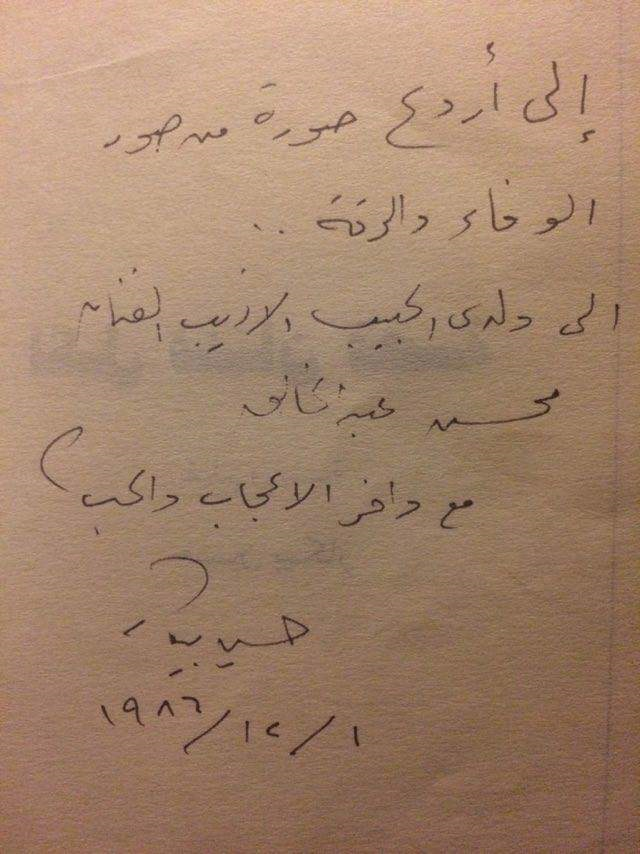 إلى أروع صورة من صور
الوفاء والرقة ..
الى ولدى الحبيب الاديب الفنان
محسن عبد الخالق
مع وافر الاعجاب والحب
حسين بيكار
١/١٢/١٩٨٦